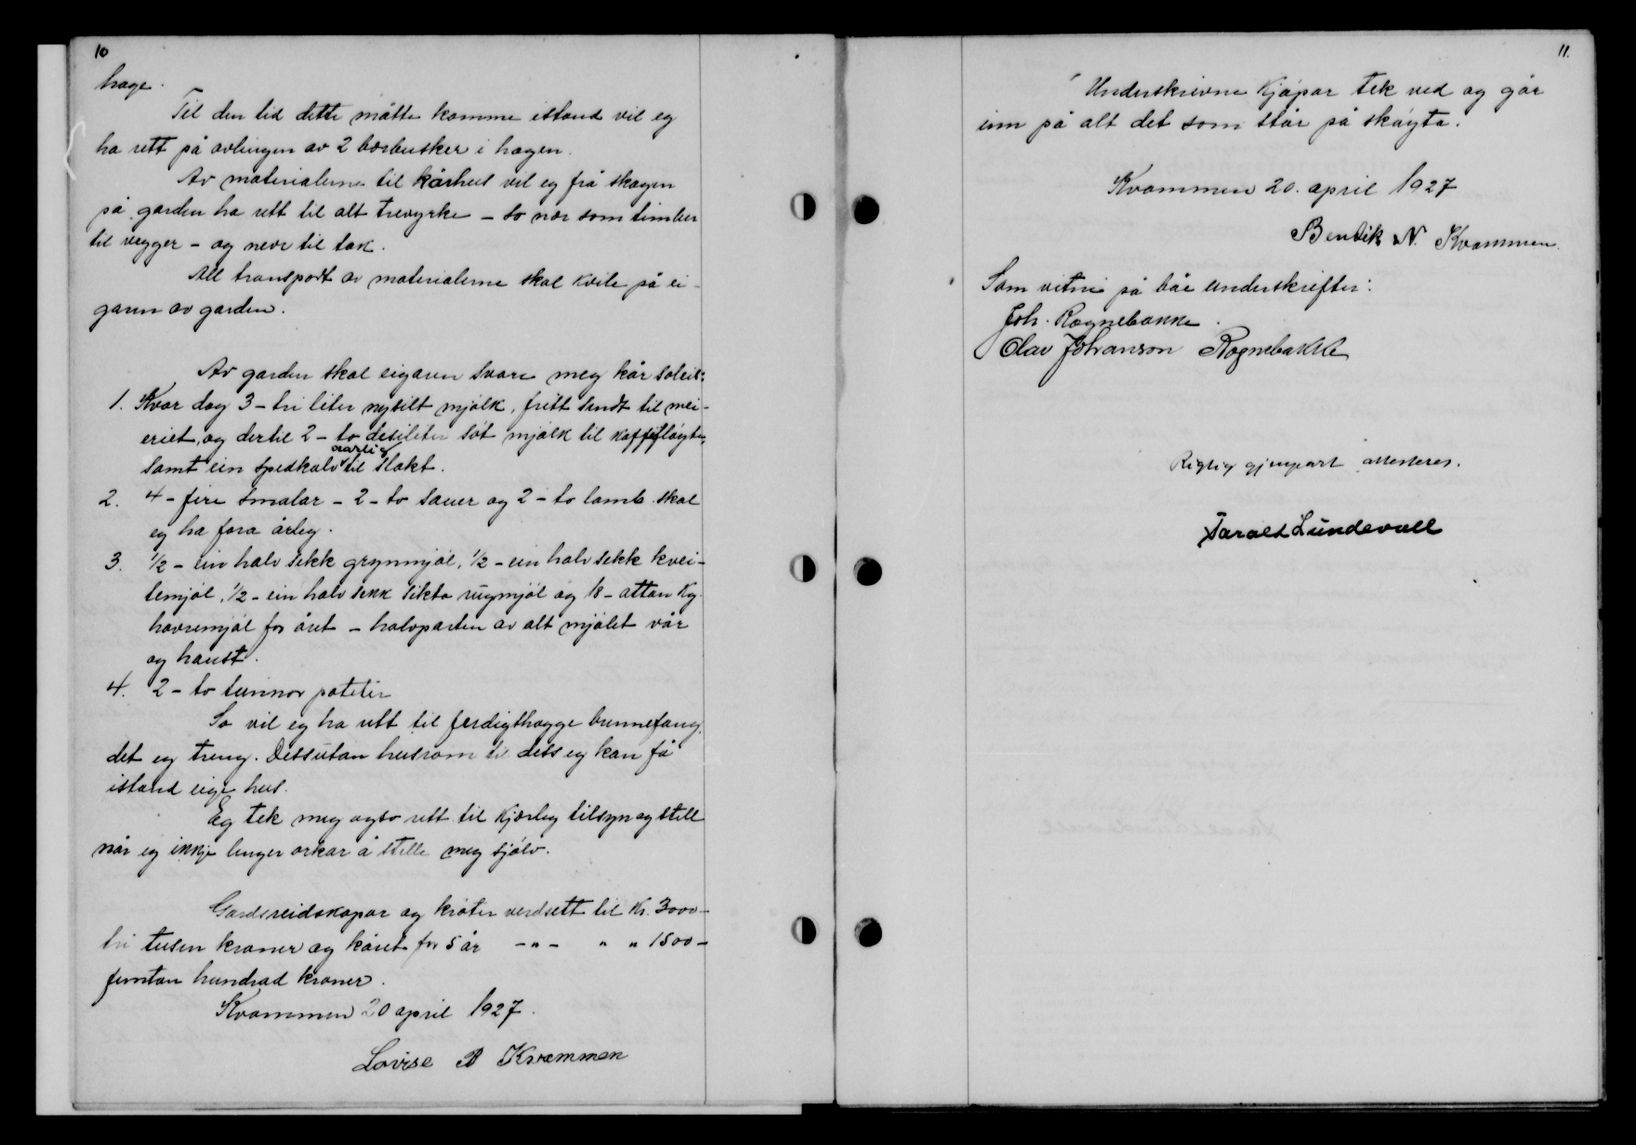 10
hage.
Til den tid dette måtte komme istand vil eg
ha rett på avlingen av 2 bærbusker i hagen.
Av materialerne til kårhus vil eg frå skogen
på garden ha rett til alt trevyrke - so nær som timber
til vegger - og never til tak.
All transport av materialerne skal kvile på ei-
garen av garden.
Av garden skal eigaren svare meg kår soleis:
1. Kvar dag 3 - tri liter nysilt mjølk, fritt sendt til mei-
eriet, og dertil 2 - to desiliter søt mjølk til kaffefløyte,
aarlig
samt ein spedkalv til slakt.
2. 4 - fire smalar - 2 - to sauer og 2 - to lamb skal
eg ha fora årleg.
3. 1/2 - ein halv sekk grynmjøl, 1/2 - ein halv sekk kvei-
temjøl, 1/2 - ein halv sekk sikta rugmjøl og 18 - attan kg.
havremjøl for året - halvparten av alt mjølet vår
og haust.
4. 2 - to tunnor poteter
So vil eg ha rett til ferdighogge brennefang,
det eg treng. Dessutan husrom til dess eg kan få
istand eige hus.
Eg tek meg ogso rett til kjærleg tilsyn og stell
når eg ikkje lenger orkar å stelle meg sjølv.
Gardsreidskapar og krøter verdsett til kr. 3000-
tri tusen kroner og kåret for 5 år -"- " " 1500-
femtan hundrad kroner.
Kvammen 20 april 1927.
Lovise B Kvammen
11.
Underskrivne kjøpar tek ved og går
inn på alt det som står på skøyta.
Kvammen 20. april 1927
Bendik N. Kvammen.
Som vitne på båe underskrifter:
Joh. Rognebakke.
Olav Johanson Rognebakke
Rigtig gjenpart attesteres.
Tarald Lundevall